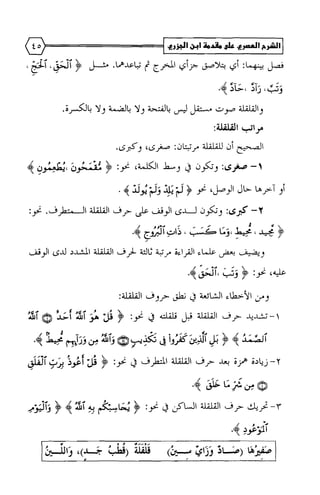 الشرح العصري على مقدمة ابن الجزري
٤٥
فصل بينهما: أي بتلاصق جزأي المخرج ثم تباعدهما. مثل ﴿ ٱلْحَقِّ، ٱلْحَجِّ،
وَتَبَّ، رَادَّ، حَادَّ ﴾.
والقلقلة صوت مستقل ليس بالفتحة ولا بالضمة ولا بالكسرة.
مراتب القلقلة:
الصحيح أن للقلقلة مرتبتان: صغرى، وكبرى.
١- صغرى: وتكون في وسط الكلمة، نحو: ﴿ مُّقْمَحُونَ، يُطْعِمُونِ ﴾
أو آخرها حال الوصل، نحو ﴿ لَمْ يَلِدْ وَلَمْ يُولَدْ ﴾ .
٢- كبرى: وتكون لـدى الوقف على حرف القلقلة المـتطرف. نحو:
﴿ مَّجِيد ، مُّحِيط ، وَمَا كَسَبَ ، ذَاتِ ٱلْبُرُوجِ ﴾.
ويضيف بعض علماء القراءة مرتبة ثالثة لحرف القلقلة المشدد لدى الوقف
عليه، نحو: ﴿ وَتَبَّ ، ٱلْحَقُّ ﴾.
ومن الأخطاء الشائعة في نطق حروف القلقلة:
١-تشديد حرف القلقلة قبل قلقلته في نحو: ﴿ قُلْ هُوَ ٱللَّهُ أَحَدٌ ۝ ٱللَّهُ
ٱلصَّمَدُ ﴾ ﴿ بَلِ ٱلَّذِينَ كَفَرُوا۟ فِى تَكْذِيبٍ ۝ وَٱللَّهُ مِن وَرَآئِهِم مُّحِيطٌ ﴾.
٢-زيادة همزة بعد حرف القلقلة المتطرف في نحو: ﴿ قُلْ أَعُوذُ بِرَبِّ ٱلْفَلَقِ
۝ مِن شَرِّ مَا خَلَقَ ﴾.
٣- تحريك حرف القلقلة الساكن في نحو: ﴿ يُحَاسِبْكُم بِهِ ٱللَّهُ ﴾ ﴿ وَٱلْيَوْمِ
ٱلْمَوْعُودِ ﴾.
صَفِيرُهَا (صَـادٌ وَزَايٌ سِـينٌ) قَلْقَلَةٌ (قُطْبُ جَـدٍ)، وَاللِّـينُ